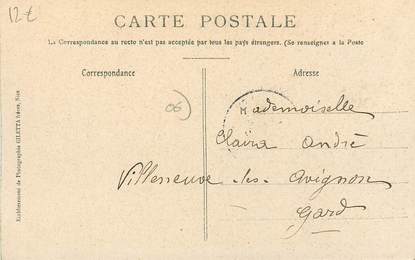 12 €
CARTE POSTALE
La Correspondance au recto n'est pas acceptée par tous les pays étrangers. (Se renseigner à la Poste
Correspondance
Adresse
06
Mademoiselle
Claira André
Villeneuve-les-Avignon
Gard
Etablissement de Photographie GILETTA frères, Nice